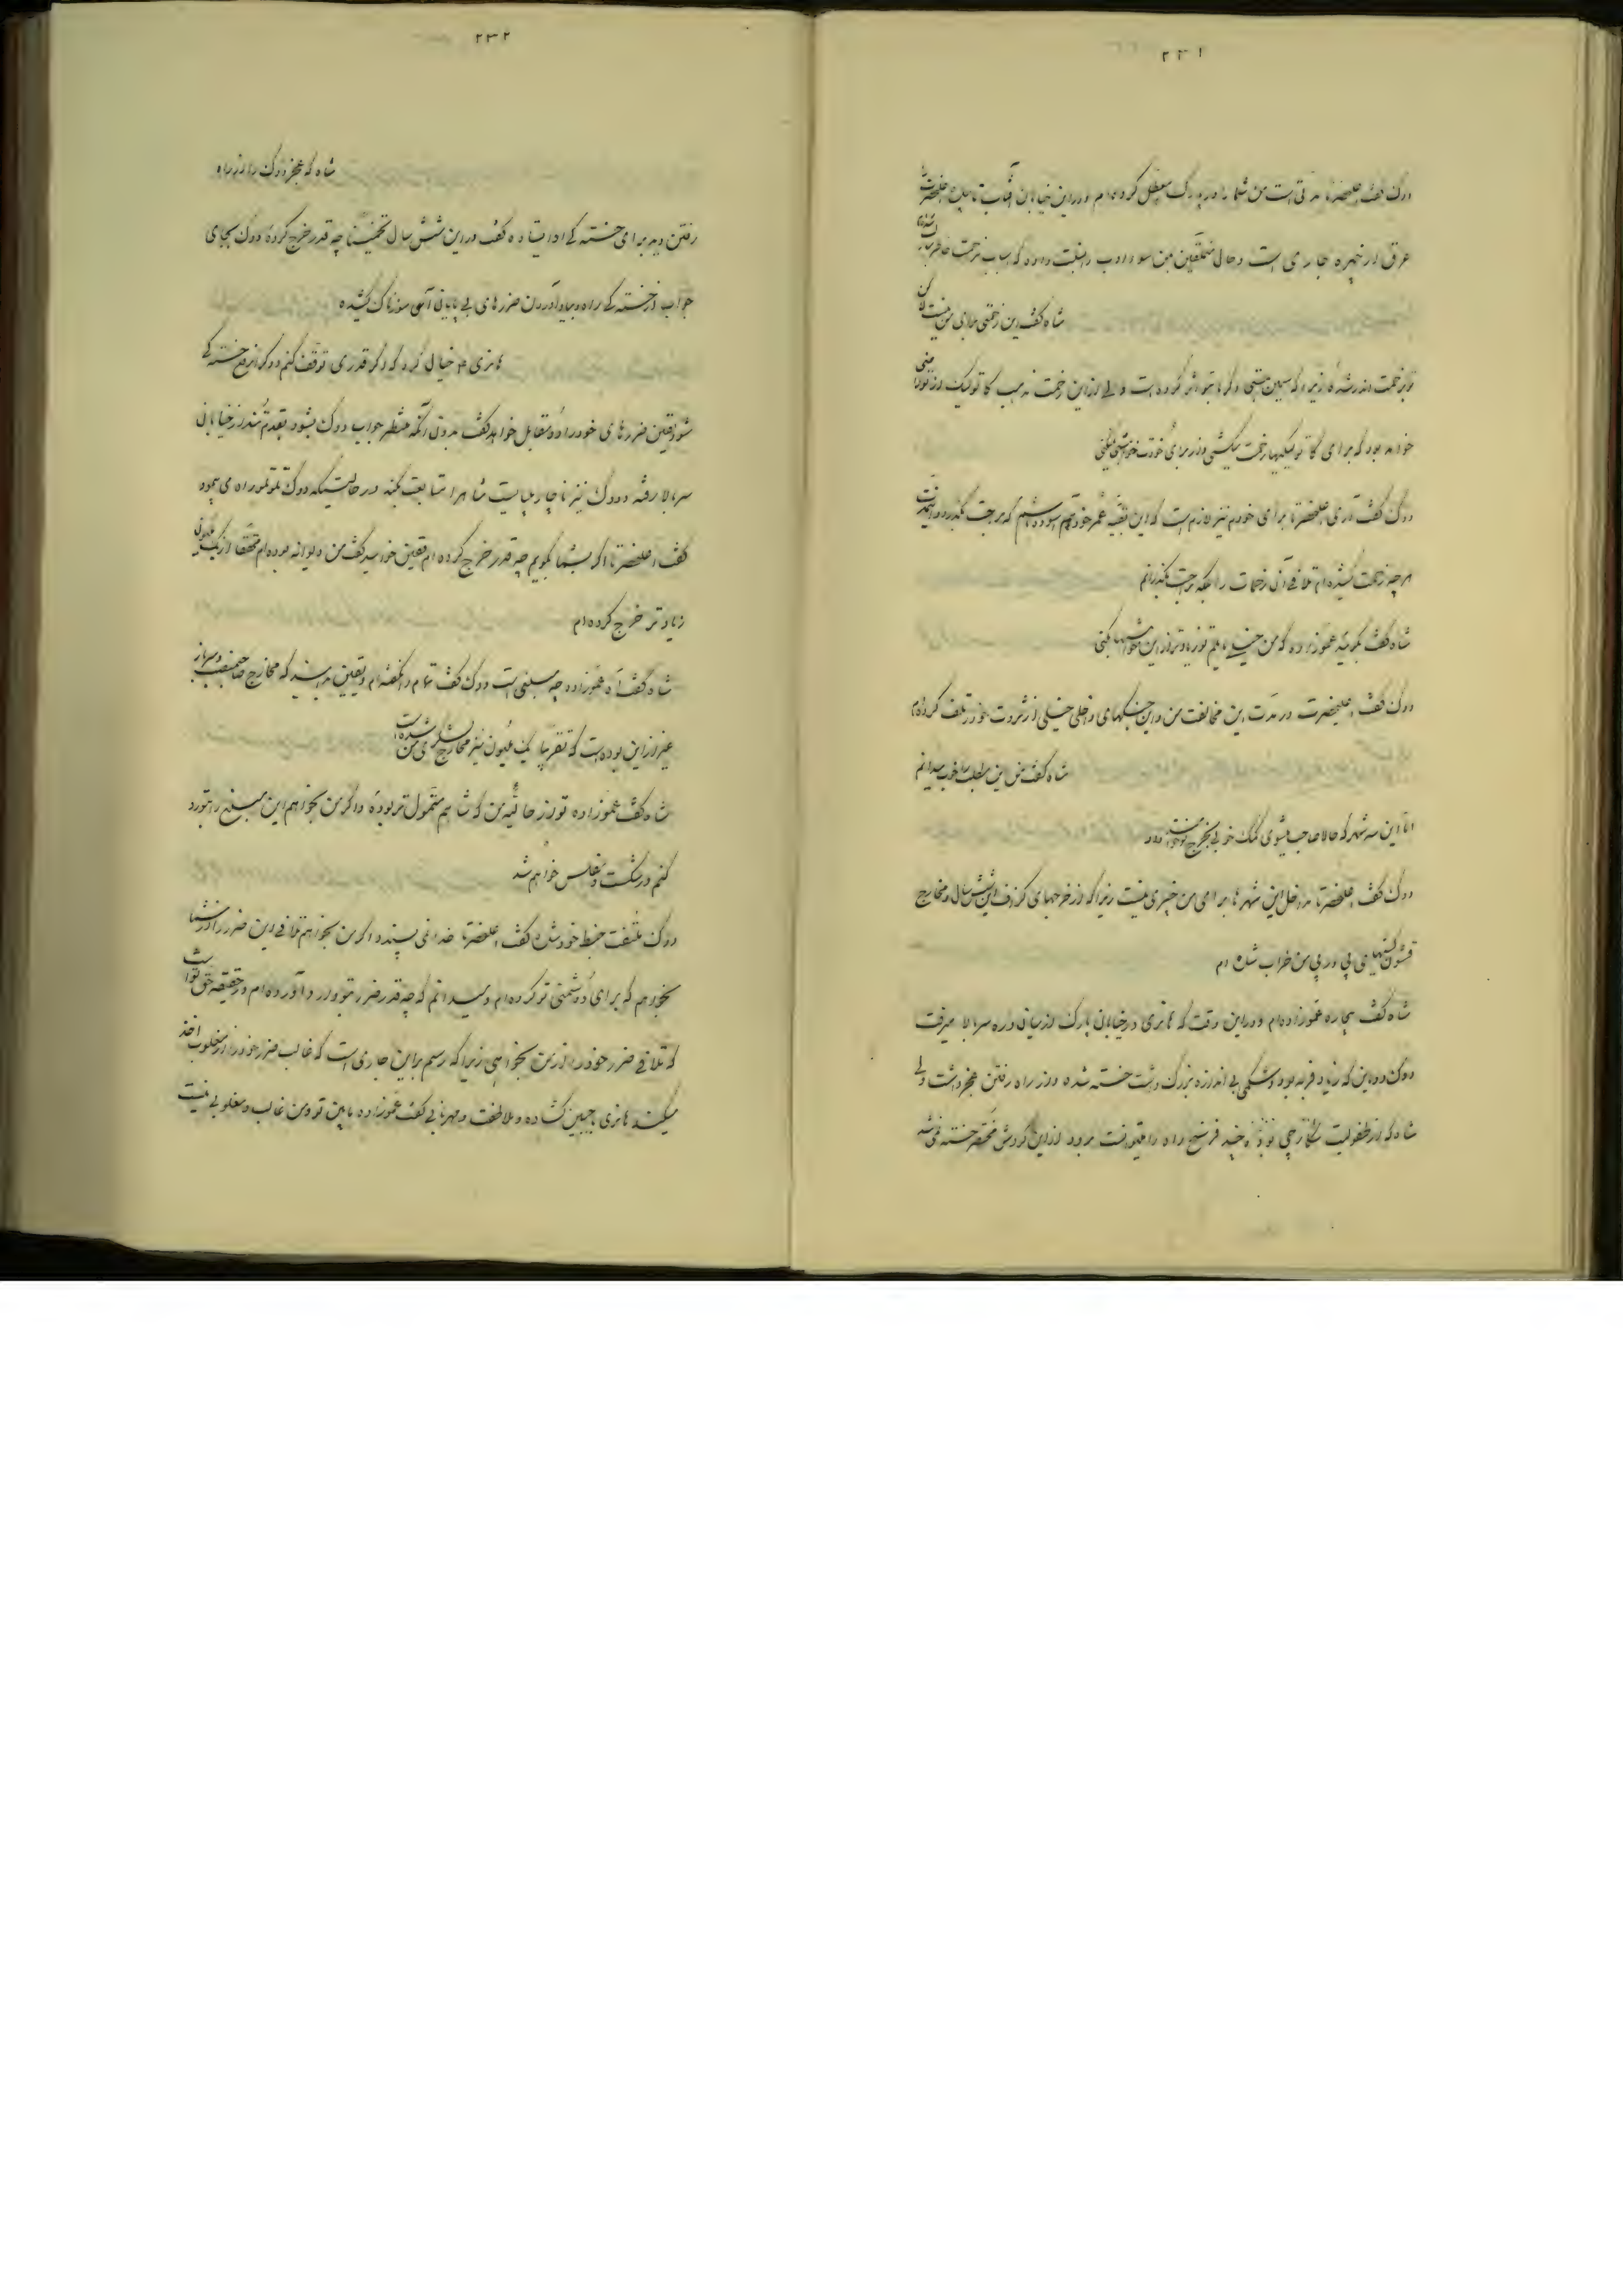 ۲۳۱
دوک گفت اعلیحضرتا مدتی است من شما را در پارک معطل کرده‌ام و در این خیابان آفتاب تابیده اعلیحضرت را
عرق از چهره جاری است و حال متملقین بمن سوء ادب را نسبت داده که اسباب زحمت خاطر
شاه گفت این زحمتی برای من نیست لکن
تو بزحمت اندر شده زیرا که بمن گرما بتو اثر کرده است ولی از این زحمت مذهب کاتولیک از تو راضی
خواهد بود که برای کاتولیکها زحمت میکشی و نه برای خودت خواهش میکنی
دوک گفت آری اعلیحضرتا برای خودم نیز لازم است که این بقیه عمر خود هم آسوده باشم که براحت بگذرد و اینمدت
هر چه زحمت کشیده‌ام تلافی آن زحمات را بلکه براحت بگذرانم
شاه گفت بگو بینم عموزاده که من خیلی مایلم تو زیادتر از این خواهشها بکنی
دوک گفت اعلیحضرت در مدت این مخالفت من و این جنگهای داخلی خیلی از ثروت خود تلف کرده‌ام
شاه گفت من این مطلب را خوب میدانم
اما این سه شهر که حالا صاحب میشوی کمک خوبی بخرج تو خواهند داد
دوک گفت اعلیحضرتا مداخل این شهرها برای من چیزی نیست زیرا که از خرجهای گزاف این شش سال و مخارج
قشون‌کشیهای پی در پی من خراب شده ام
شاه گفت بیچاره عموزاده‌ام و در این وقت که هانری در خیابان پارک از میان دره سربالا میرفت
دوک دوماین که زیاد فربه بود و شکمی بی اندازه بزرگ داشت خسته شده و از راه رفتن عجز داشت ولی
شاه که از طفولیت شکارچی بوده و چند فرسخ راه را میتوانست برود از این گردش مختصر خسته نمی‌شد
۲۳۲
شاه که عجز دوک را از راه
رفتن دید برای خستگی او ایستاده گفت در این شش سال تخمیناً چه قدر خرج کرده دوک بجای
جواب از خستگی راه و بیاد آوردن ضررهای بی پایانی آهی سوزناک کشیده
هانری هم خیال کرد که اگر قدری توقف کنم و دوک رفع خستگی
شود یقین ضررهای خود را دو مقابل خواهد گفت بدون آنکه منتظر جواب دوک بشود بقدم تند در خیابان
سربالا رفته و دوک نیز ناچار میبایست شاه را متابعت بکند در حالتیکه دوک تلوتلو راه می پیمود
گفت اعلیحضرتا اگر بشما بگویم چه قدر خرج کرده ام یقین خواهید گفت من دیوانه بوده‌ام محققاً از یک ملیون
زیادتر خرج کرده‌ام
شاه گفت آه عموزاده چه مبلغی است دوک گفت تمام را نگفته‌ام و یقین بدانید که مخارج صاحبمنصب و سرباز
غیر از این بوده است که تقریباً یک ملیون نیز مخارج لشکری من شده است
شاه گفت عموزاده تو از حالیه من که شاهم متمول‌تر بودهٔ و اگر من بخواهم این مبلغ را بتو رد
کنم ورشکست و مفلس خواهم شد
دوک ملتفت خبط خود شده گفت اعلیحضرتا خدا نمی پسندد اگر من بخواهم تلافی این ضرر را از شما
بخواهم که برای دشمنی تو کرده‌ام و میدانم که چه قدر ضرر بتو وارد آورده‌ام و در حقیقه حق تو است
که تلافی ضرر خود را از من بخواهی زیرا که رسم بر این جاری است که غالب ضرر خود را از مغلوب اخذ
میکند هانری با جبین گشاده و ملاطفت و مهربانی گفت عموزاده مابین تو و من غالب و مغلوبی نیست